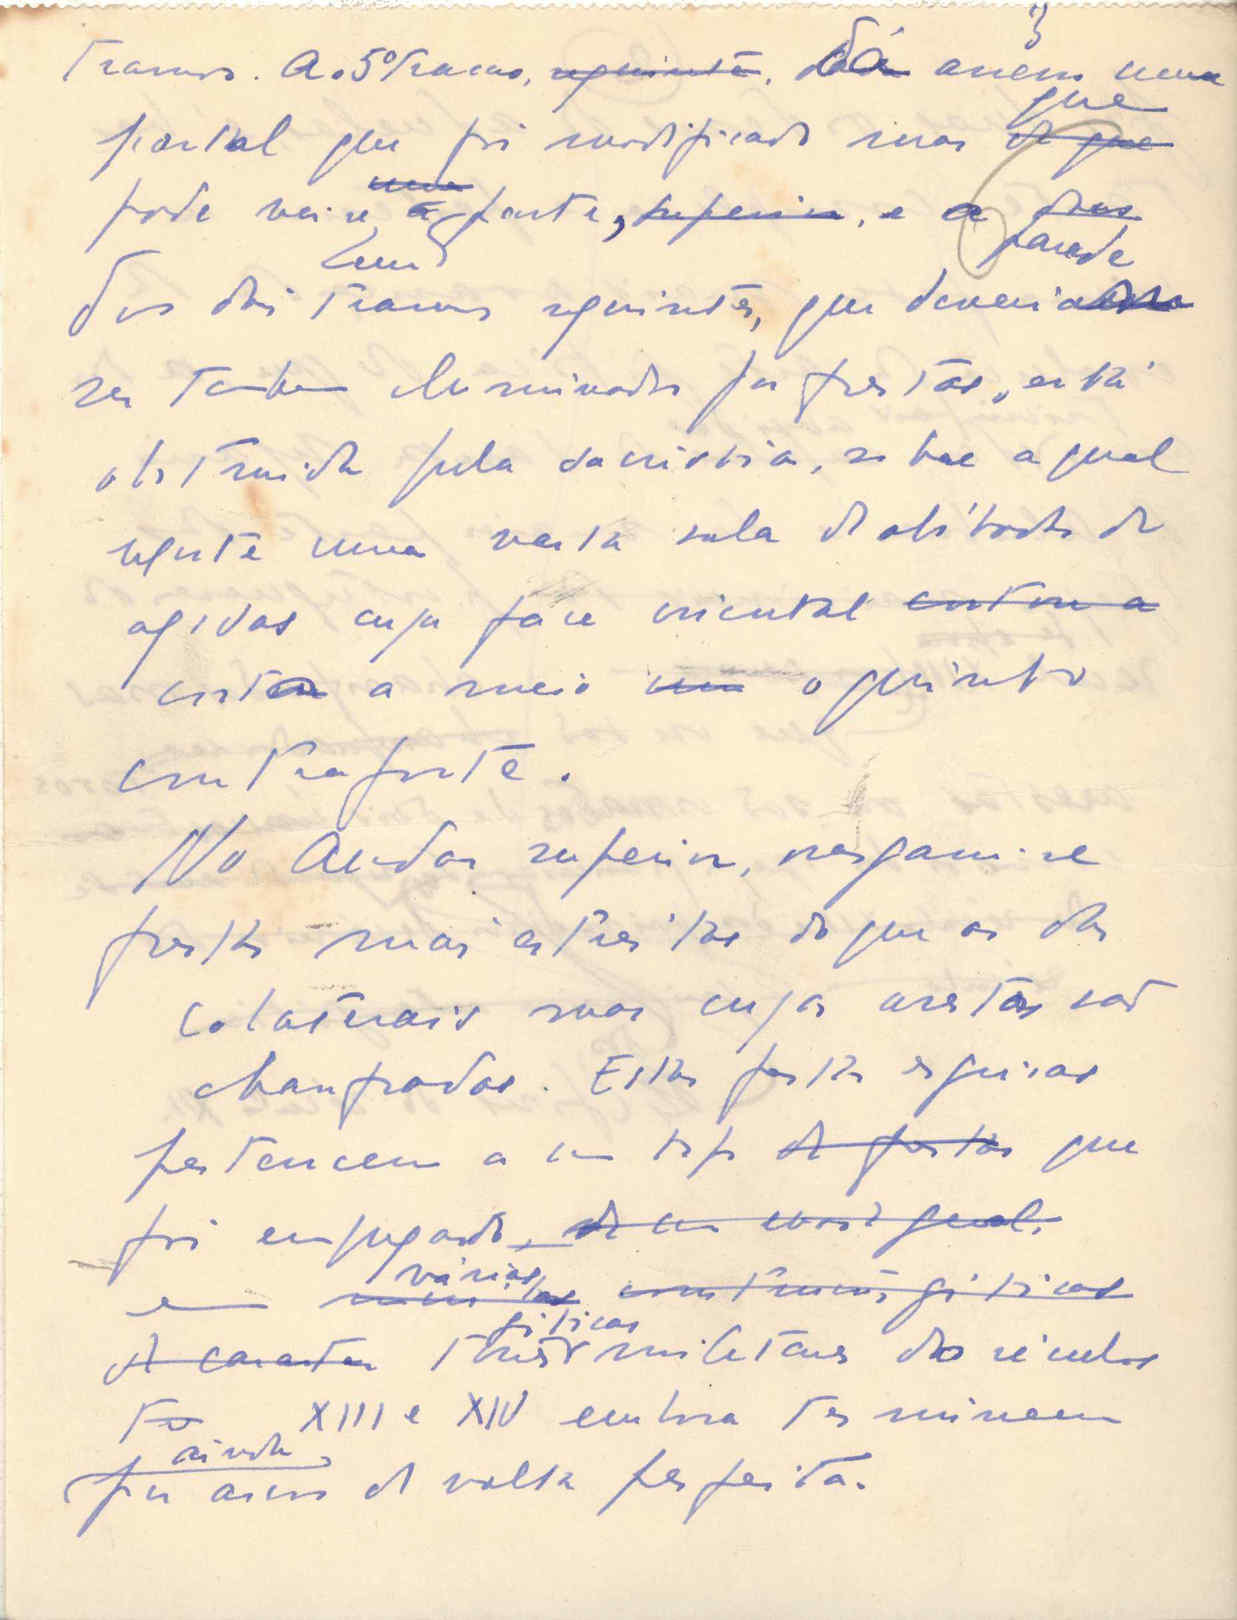 3
tramos. Ao 5º tramo, seguinte, dá acesso uma
portal que foi modificado mas de que que
pode ver-se, a parte, superior, e a
parede
dos dois tramos seguintes, que deveria
ser também iluminados por frestas, está
obstruida pela sacristia, sobre a qual
uma vasta sala de abóbada de
ogivas cuja face oriental
corta a meio o quinto
contraforte.
No Andar superior, rasgam-se
frestas mais estreitas do que as das
colaterais mas cujas arestas são
chanfradas. Estas frestas esguias
pertencem a um tipo de frestas que
foi empregado, de um modo geral,
várias
em muitas construções góticas
góticas
de caracter torres militares dos séculos
XIII e XIV embora terminem
ainda
por arcos de volta perfeita.